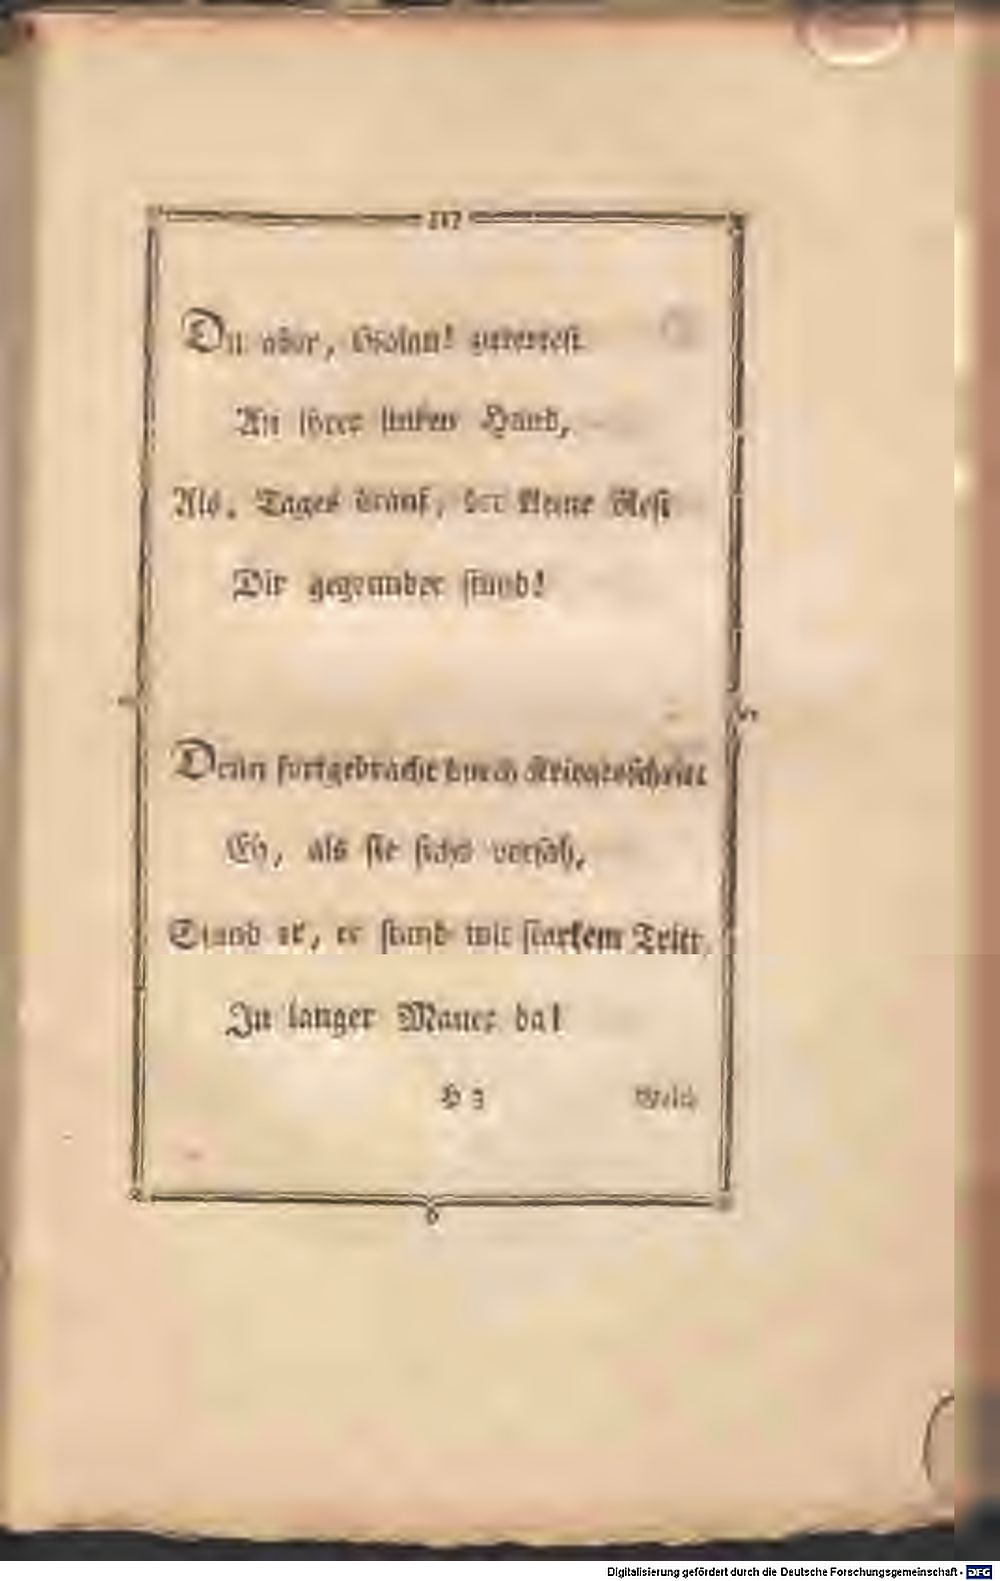 117
Du aber, Golan! zittertest
An ihrer linken Hand,
Als, Tages drauf, der kleine Rest
Dir gegenüber stund!
Denn fortgebracht durch Kriegesschritt
Eh, als sie sichs versah,
Stand er, er stand mit starkem Tritt,
In langer Mauer da!
H 3
Welch
Digitalisierung gefördert durch die Deutsche Forschungsgemeinschaft - DFG